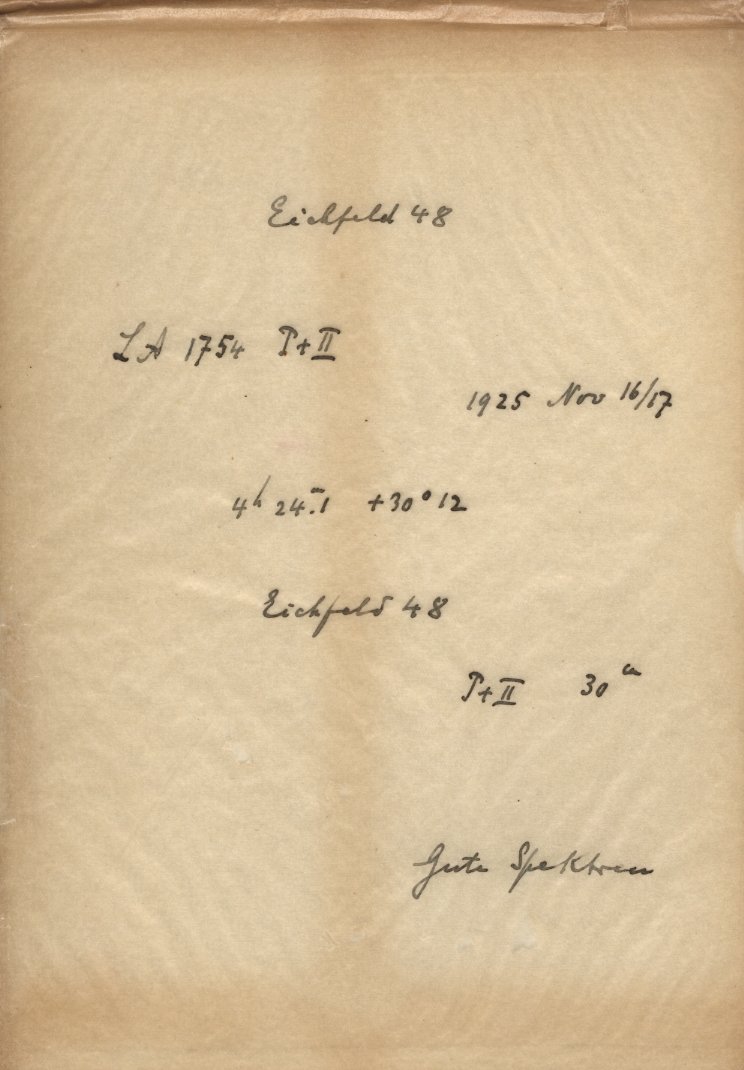 Eichfeld 48
LA 1754 P+II
1925 Nov 16/17
4h 24m.1 +30° 12
Eichfeld 48
P+II 30m
Gute Spektren